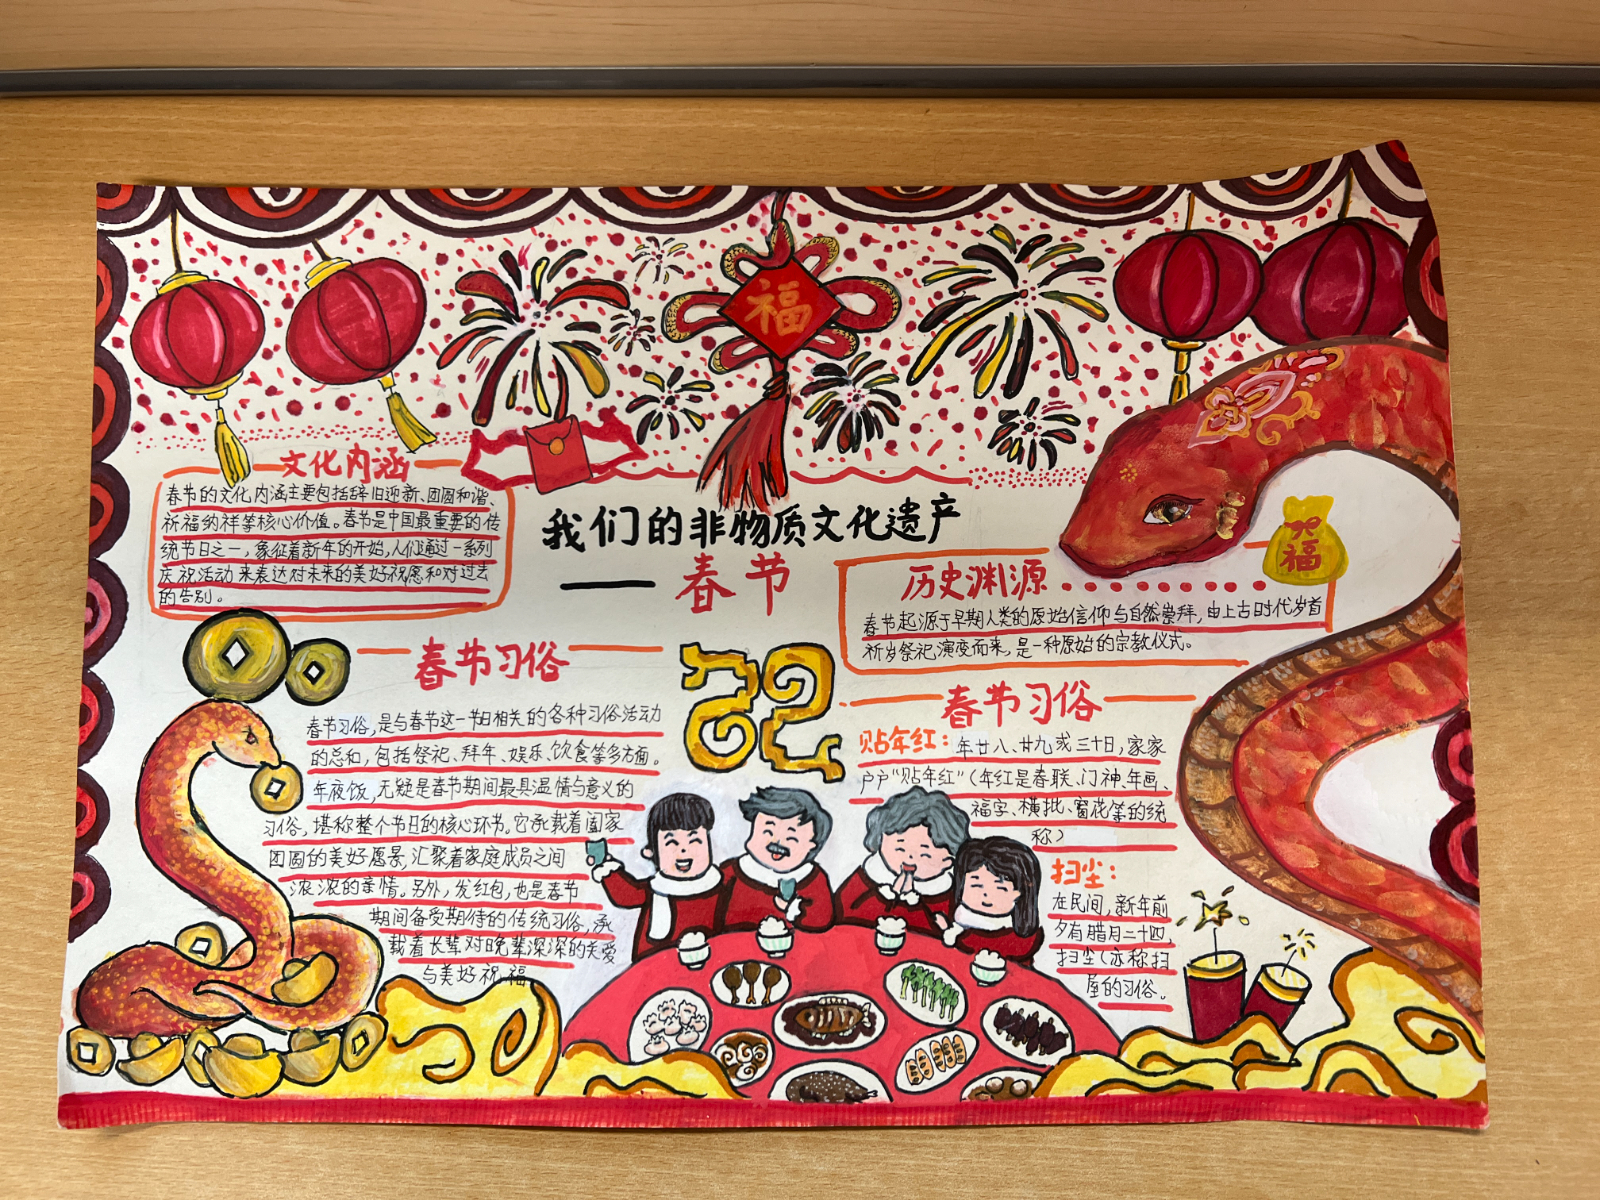 福
文化内涵
春节的文化内涵主要包括辞旧迎新、团圆和谐、
祈福纳祥等核心价值。春节是中国最重要的传
统节日之一，象征着新年的开始，人们通过一系列
庆祝活动来表达对未来的美好祝愿和对过去
的告别。
我们的非物质文化遗产
——春节
历史渊源
福
春节起源于早期人类的原始信仰与自然崇拜，由上古时代岁首
祈岁祭祀演变而来，是一种原始的宗教仪式。
春节习俗
春节习俗，是与春节这一节日相关的各种习俗活动
的总和，包括祭祀、拜年、娱乐、饮食等多方面。
年夜饭，无疑是春节期间最具温情与意义的
习俗，堪称整个节日的核心环节。它承载着阖家
团圆的美好愿景，汇聚着家庭成员之间
浓浓的亲情。另外，发红包，也是春节
期间备受期待的传统习俗，承
载着长辈对晚辈深深的关爱
与美好祝福。
春节习俗
贴年红：年廿八、廿九或三十日，家家
户户“贴年红”（年红是春联、门神、年画、
福字、横批、窗花等的统
称）
扫尘：
在民间，新年前
夕有腊月二十四，
扫尘（亦称扫
屋的习俗。